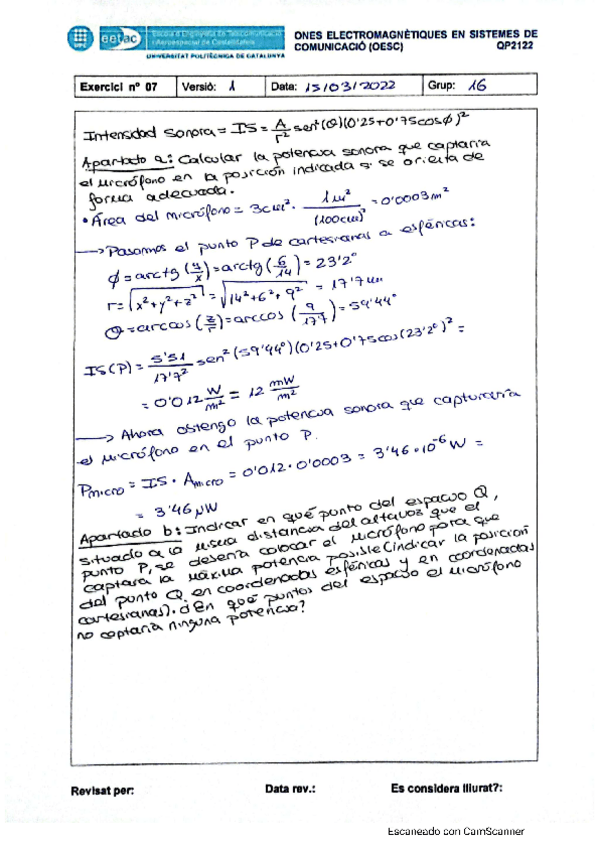 eetac
Escola d'Enginyeria de Telecomunicació
i Aeroespacial de Castelldefels
UNIVERSITAT POLITÈCNICA DE CATALUNYA
ONES ELECTROMAGNÈTIQUES EN SISTEMES DE
COMUNICACIÓ (OESC) QP2122
Exercici nº 07 Versió: 1 Data: 15/03/2022 Grup: 16
Intensidad sonora = IS = A/r² sen²(θ)(0'25+0'75cosϕ)²
Apartado a: Calcular la potencia sonora que captaría
el micrófono en la posición indicada si se orienta de
forma adecuada.
• Área del micrófono = 3cm² · 1m²/(100cm)² = 0'0003m²
→ Pasamos el punto P de cartesianas a esféricas:
ϕ = arctg(y/x) = arctg(6/14) = 23'2°
r = √(x²+y²+z²) = √(14²+6²+9²) = 17'7m
θ = arccos(z/r) = arccos(9/17'7) = 59'44°
IS(P) = 5'51/17'7² sen²(59'44°)(0'25+0'75cos(23'2°))² =
= 0'012 W/m² = 12 mW/m²
→ Ahora obtengo la potencia sonora que capturaría
el micrófono en el punto P.
Pmicro = IS · Amicro = 0'012 · 0'0003 = 3'46 · 10⁻⁶ W =
= 3'46 μW
Apartado b: Indicar en qué punto del espacio Q,
situado a la misma distancia del altavoz que el
punto P, se debería colocar el micrófono para que
captara la máxima potencia posible (indicar la posición
del punto Q en coordenadas esféricas y en coordenadas
cartesianas). ¿En qué puntos del espacio el micrófono
no captaría ninguna potencia?
Revisat per: Data rev.: Es considera lliurat?:
Escaneado con CamScanner